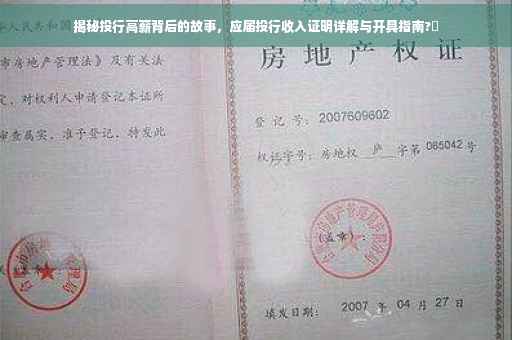 揭秘投行高薪背后的故事，应届投行收入证明详解与开具指南?
华人民共和国
市房地产管理法》及有关法
定，对权利人申请登记本证所
审查属实，准予登记，特发此
房地产权证
登记号：2007609602
权证字号：房地权 庐 字第 085042 号
(盖章)：
填发日期： 2007 年 04 月 27 日